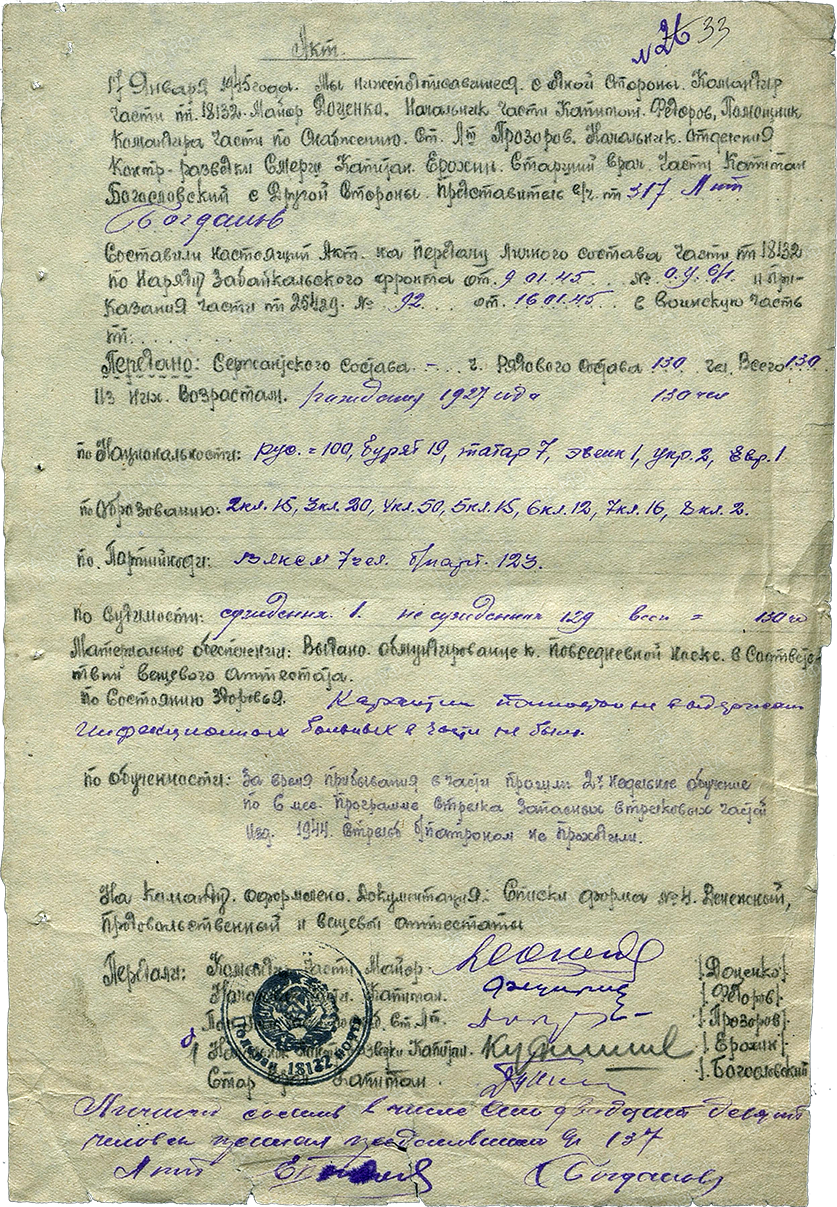 № 26 33
Акт.
17 Января 1945 года. Мы нижеподписавшиеся с одной стороны. Командир
части пп. 18132. Майор Доценко. Начальник части Капитан. Федоров, Помощник
командира части по Снабжению. Ст. Лт Прозоров. Начальник. отделения
Контр-разведки Смерш Капитан. Ерохин. Старший врач. части Капитан
Богословский с Другой Стороны. Представитель в/ч. пп 317 Л-нт
Богданов
Составили настоящий Акт. на передачу личного состава части пп 18132
по Наряду Забайкальского фронта от. 9 01.45 . . №. о.у. б/н. и При-
казания части пп 25429. №. 92. . . от. 16 01.45 . . в воинскую часть
пп. . . . . . . .
Передано: Сержантского состава - . . ч. Рядового Состава 130 чел. Всего 130
Из них. Возрастам. рождения 1927 года 130 чел
по Национальности: рус. = 100, бурят 19, татар 7, эвенк 1, укр. 2, Евр. 1.
по Образованию: 2 кл. 15, 3 кл. 20, 4 кл. 50, 5 кл. 15, 6 кл. 12, 7 кл. 16, 8 кл. 2.
по. Партийности: влксм 7 чел. б/парт. 123.
по Судимости: 1. 129 = 130 че
Материальное обеспечении: Выдано. обмундирование к. повседневной носке. в Соответс-
твии вещевого аттестата.
по Состоянию Здоровья. Карантин полностью не выдержан
инфекционных больных в части не было.
по обученности: За время прибывания в части прошли 2х недельное обучение
по 6 мес. Программе Стрелка Запасных Стрелковых частей
Изд. 1944. Стрельб б/патроном не проходили.
На Команду. оформлено. Документация: Списки форма № 4. Денежный,
продовольственный и вещевой аттестаты
Передали: Командир части Майор [Доценко].
Капитан. [Федоров].
Ст. Лт. [Прозоров].
Капитан. [Ерохин].
Капитан [Богословский
Полевая почта 18132
Личный состав в числе Сто тридцать
человек принял представитель 317
Л-нт (Богданов)